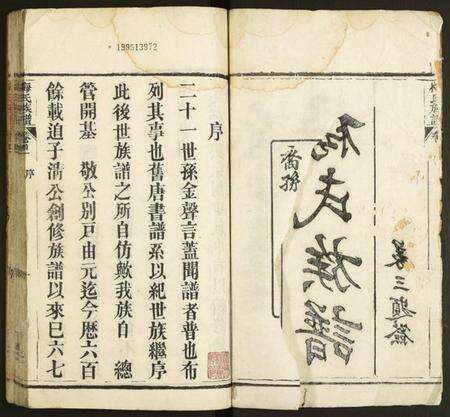 氏族譜
氏族譜
序
二十一世孫金聲言蓋聞譜者普也布
列其事也舊唐書譜系以紀世族繼序
此後世族譜之所自仿歟我族自 總
管開基 敬公別戶由元迄今歷六百
餘載迨子淸公創修族譜以來已六七
梅氏族譜
序